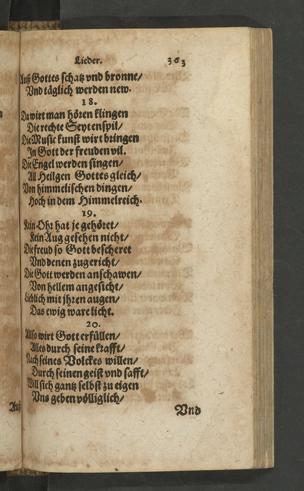 Lieder. 363
Auß Gottes schatz vnd bronne/
Vnd täglich werden new.
18.
Da wirt man hören klingen
Die rechte Seytenspil/
Die Music kunst wirt bringen
In Gott der freuden vil.
Die Engel werden singen/
All Heilgen Gottes gleich/
Von himmelischen dingen/
Hoch in dem Himmelreich.
19.
Kein Ohr hat je gehöret/
Kein Aug gesehen nicht/
Die freud so Gott bescheret
Vnd denen zugericht/
Die Gott werden anschawen/
Von hellem angesicht/
Lieblich mit jhren augen/
Das ewig ware licht.
20.
Also wirt Gott erfüllen/
Alles durch seine krafft/
Nach seines Volckes willen/
Durch seinen geist vnd safft/
Will sich gantz selbst zu eigen
Vns geben völliglich/
Vnd